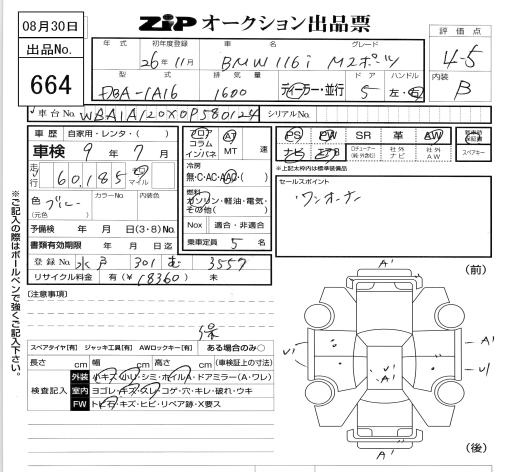 08月30日
出品No.
664
ZIP オークション出品票
評価点
4-5
内装
B
年式 初年度登録 車名 グレード
26年11月 BMW 116i Mスポーツ
型式 排気量 ドア ハンドル
DBA-1A16 1600 ディーラー・並行 5 左・右
車台No. WBA1A120X0P580124 シリアルNo.
車歴 自家用・レンタ・( )
車検 9年7月
走行 60,185 マイル
色 ブルー (元色) カラーNo. 内装色
予備検 年 月 日(3・8)No.
書類有効期限 年 月 日迄
登録No. 水戸 301 む 3557
リサイクル料金 有(¥18360) 未
フロア コラム インパネ
AT MT 速
冷房 無・C・AC・AAC・( )
燃料
ガソリン・軽油・電気・その他( )
Nox 適合・非適合
乗車定員 5 名
PS PW SR 革 AW
ナビ エアB 社外ナビ 社外AW
新車時保証書
スペアキー
*上記太枠内は標準装備品
セールスポイント
ワンオーナー
※ご記入の際はボールペンで強くご記入下さい。
[注意事項]
保
スペアタイヤ[有] ジャッキ工具[有] AWロックキー[有] ある場合のみ〇
長さ cm 幅 cm 高さ cm (車検証上の寸法)
検査記入
外装 小キズ・小凹・シミ・ホイルA・ドアミラー(A・ワレ)
室内 ヨゴレ・キズ・スレ・コゲ・穴・キレ・破れ・ウキ
FW トビ石・キズ・ヒビ・リペア跡・X要ス
(前)
A'
A'
U1
U1
U1
A'
A'
(後)